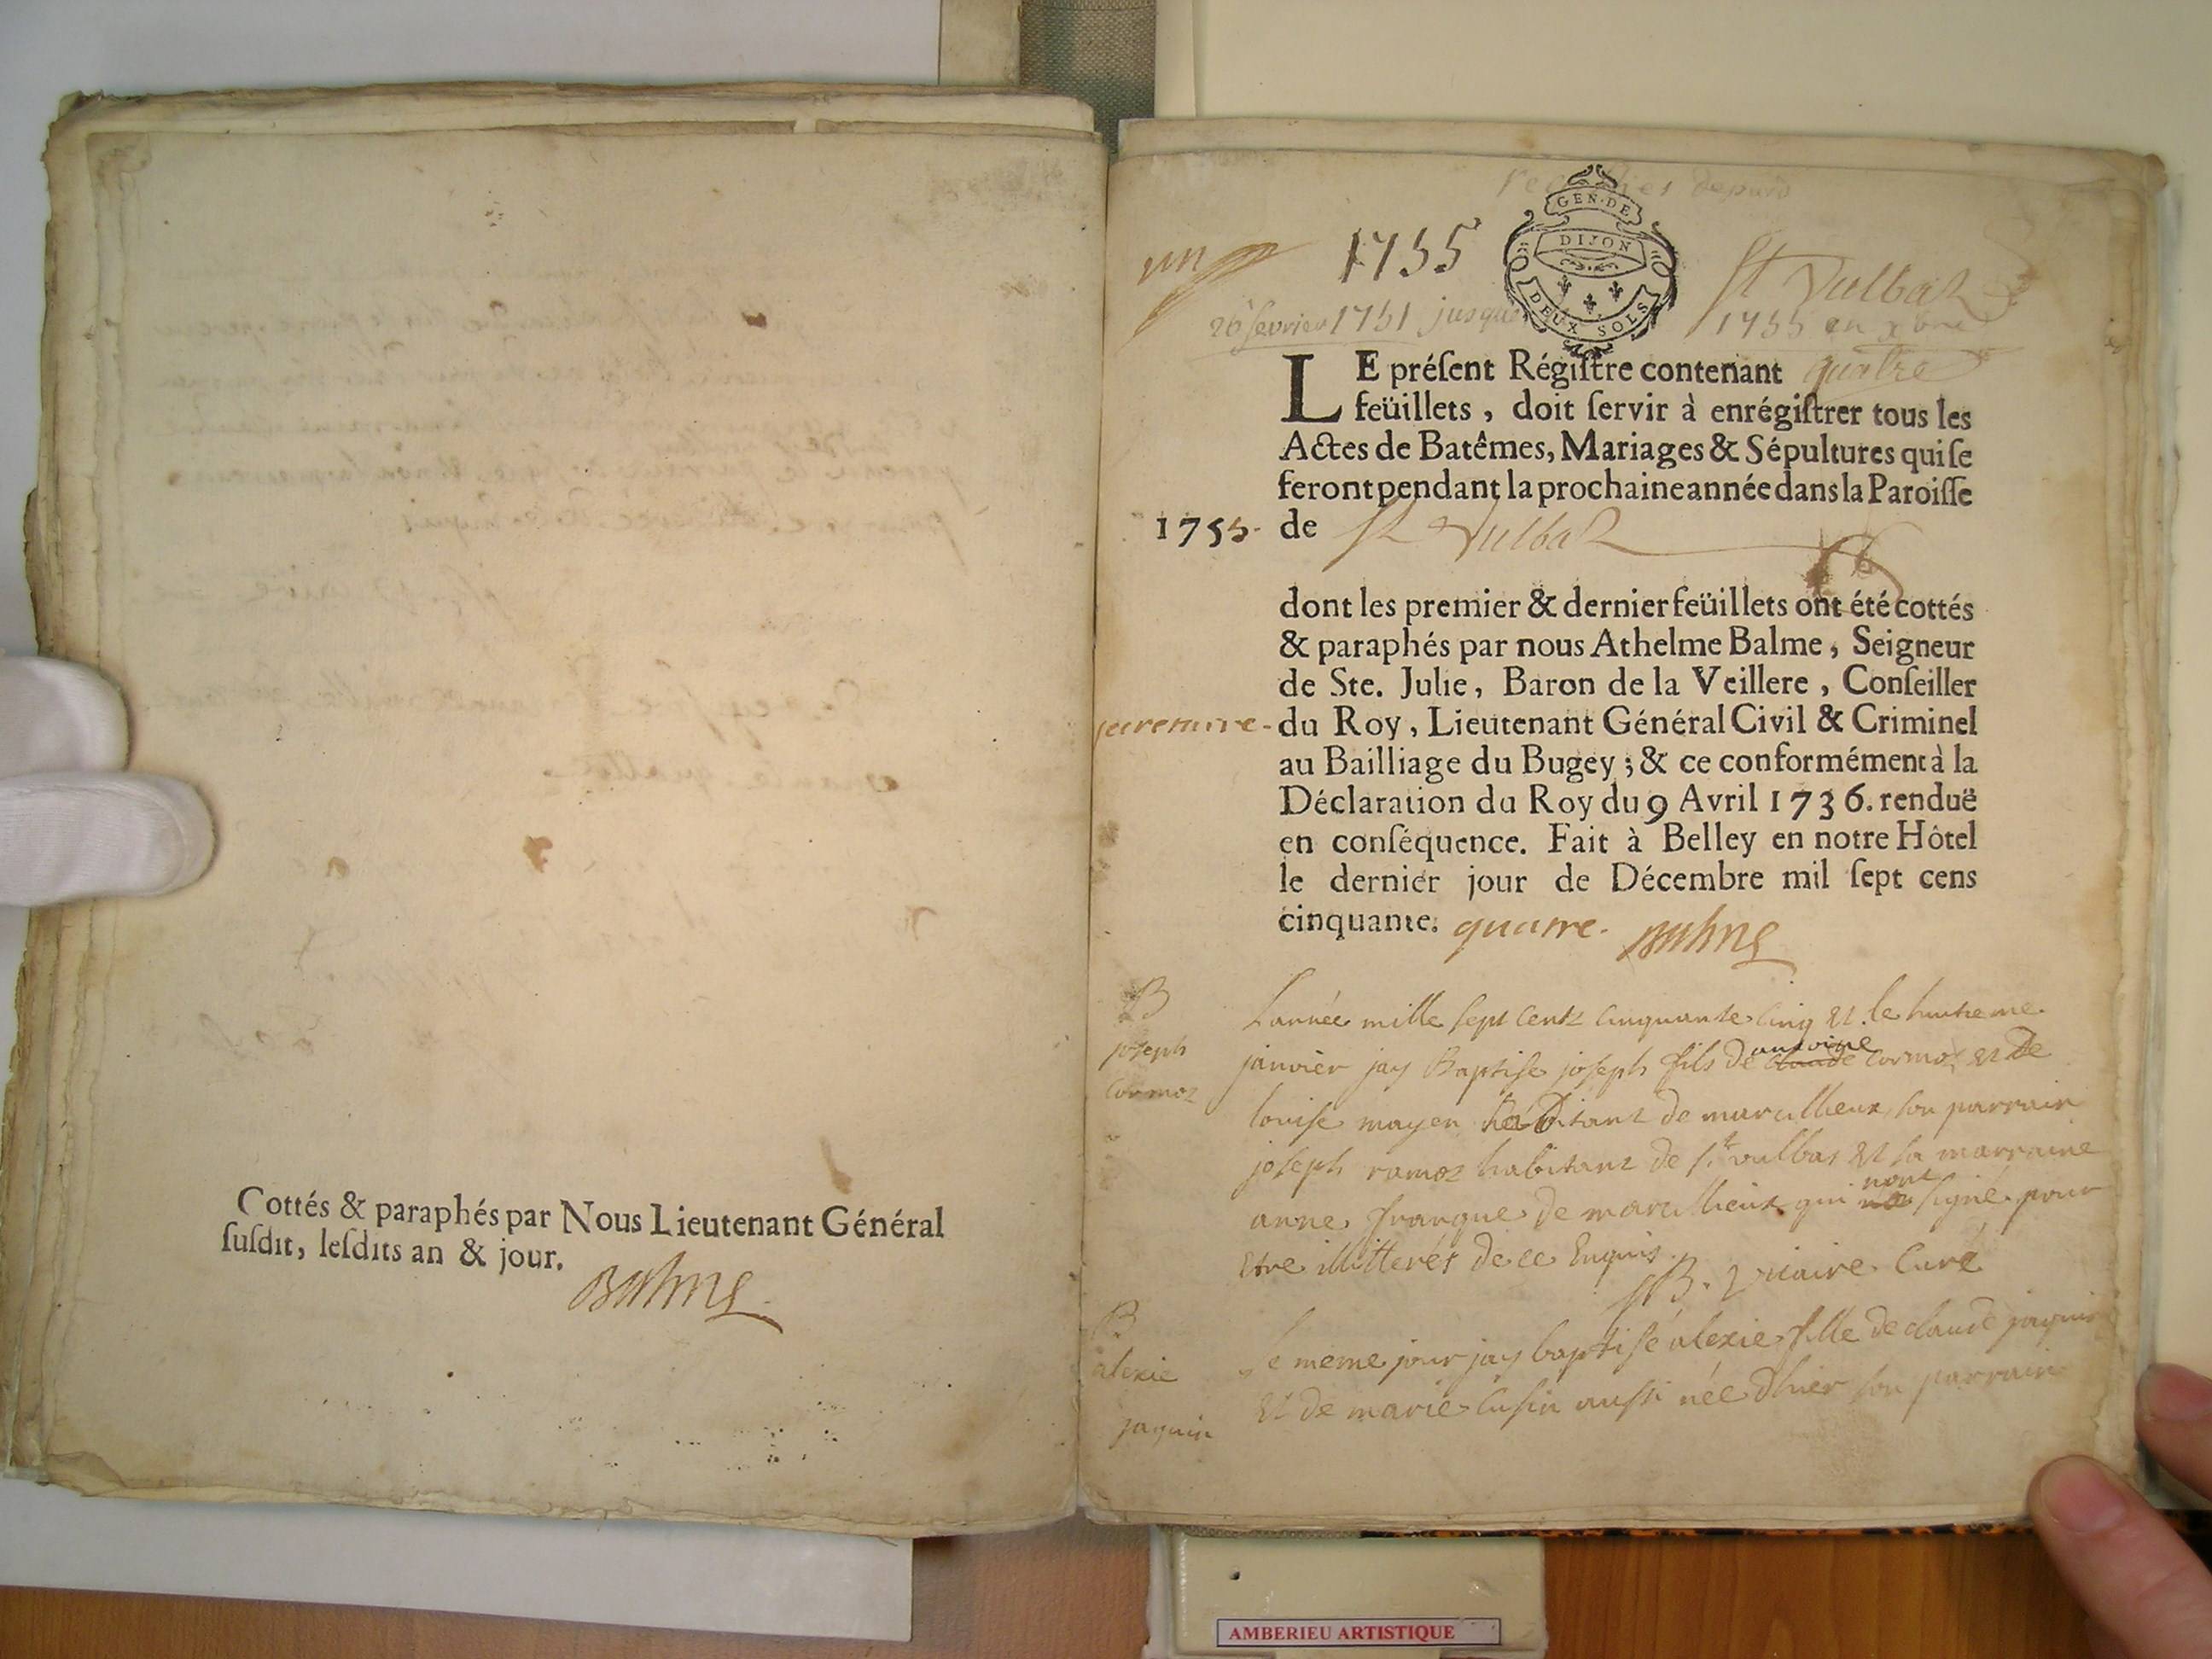 Cottés & paraphés par Nous Lieutenant Général
susdit, lesdits an & jour.
Balme
depuis
GEN·DE
DIJON
DEUX SOLS
un
1755
St Vulbas
26 fevrier 1751 jusque
1755 en xbre
LE présent Régistre contenant quatre
feüillets, doit servir à enrégistrer tous les
Actes de Batêmes, Mariages & Sépultures qui se
feront pendant la prochaine année dans la Paroisse
1755. de St Vulbas
dont les premier & dernier feüillets ont été cottés
& paraphés par nous Athelme Balme, Seigneur
de Ste. Julie, Baron de la Veillere, Conseiller
secretaire - du Roy, Lieutenant Général Civil & Criminel
au Bailliage du Bugey; & ce conformément à la
Déclaration du Roy du 9 Avril 1736. renduë
en conséquence. Fait à Belley en notre Hôtel
le dernier jour de Décembre mil sept cens
cinquante. quatre. Balme
B
joseph
Cormoz
Lannée mille sept Centz Cinquante Cinq et le huitieme
janvier jay Baptise joseph fils de antoine claude Cormoz et de
louise mayen habitant de marcillieux son parrain
joseph ramoz habitant de st vulbas et sa marraine
anne franque de marcillieux qui nont signé pour
etre illitterés de ce Enquis.
JB. Vicaire Curé
B
alexie
jaquin
Le meme jour jay baptisé alexie fille de claude jaquin
et de marie Cusin aussi née dhier son parrain
AMBERIEU ARTISTIQUE